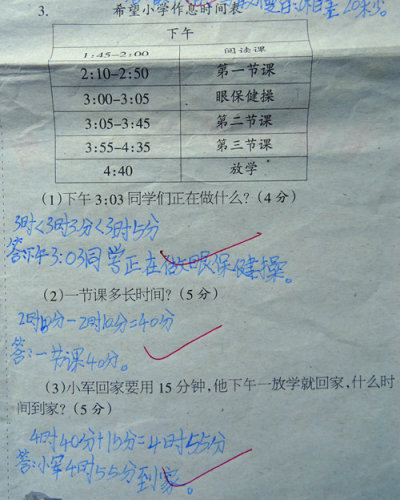 3. 希望小学作息时间表
下午
1:45-2:00 阅读课
2:10-2:50 第一节课
3:00-3:05 眼保健操
3:05-3:45 第二节课
3:55-4:35 第三节课
4:40 放学
(1)下午3:03同学们正在做什么？(4分)
3时<3时3分<3时5分
答:下午3:03同学正在做眼保健操。
(2)一节课多长时间？(5分)
2时50分-2时10分=40分
答:一节课40分。
(3)小军回家要用15分钟,他下午一放学就回家,什么时
间到家？(5分)
4时40分+15分=4时55分
答:小军4时55分到家。